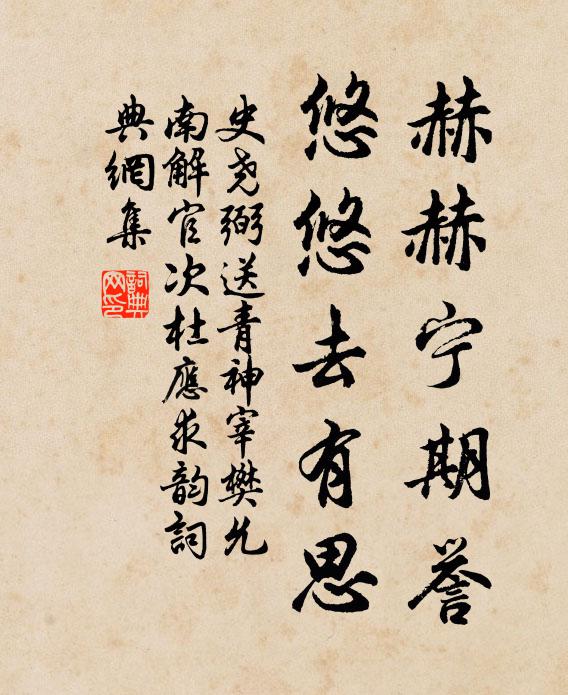 赫赫宁期誉
悠悠去有思
史尧弼送青神宰樊允
南解官次杜應求韵詞
典網集
詞典網印